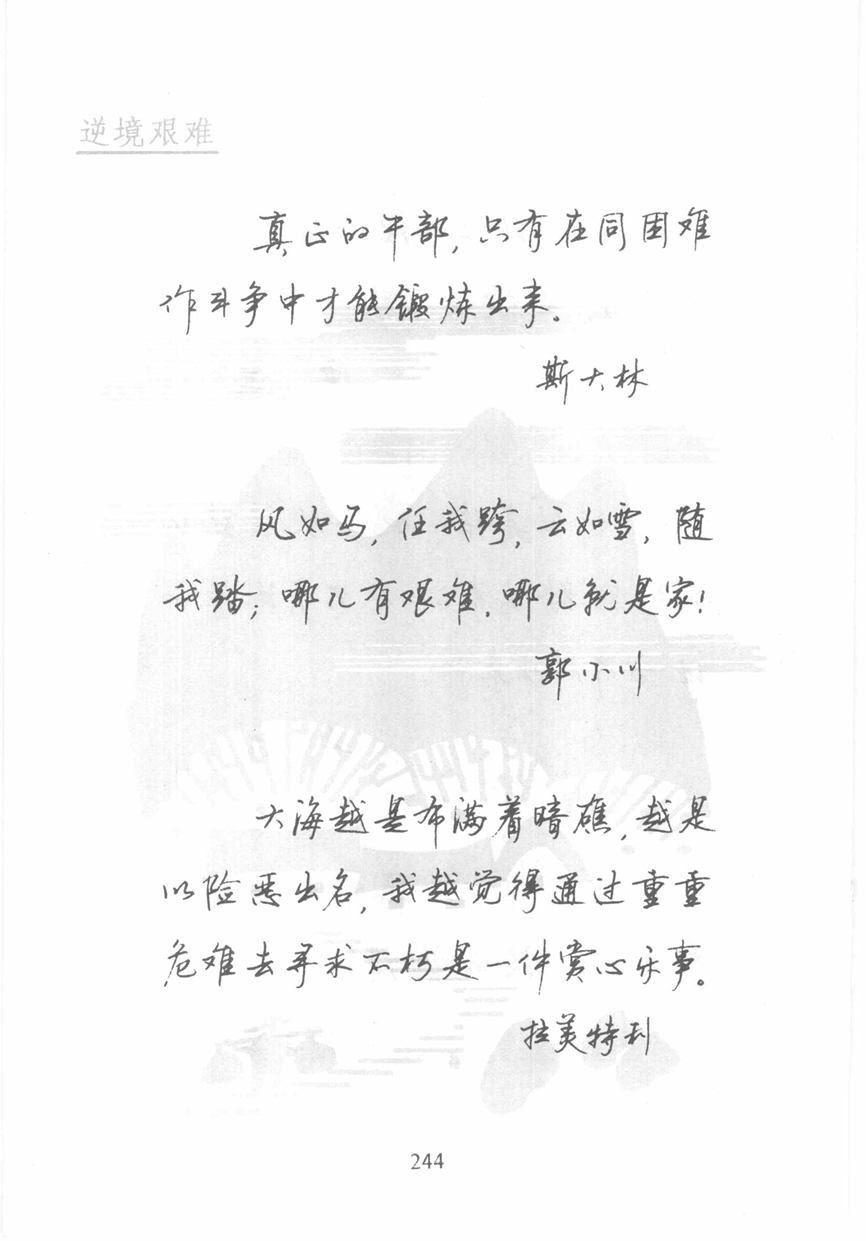 逆境艰难
真正的干部，只有在同困难
作斗争中才能锻炼出来。
斯大林
风如马，任我跨，云如雪，随
我踏；哪儿有艰难，哪儿就是家！
郭小川
大海越是布满着暗礁，越是
以险恶出名，我越觉得通过重重
危难去寻求不朽是一件赏心乐事。
拉美特利
244